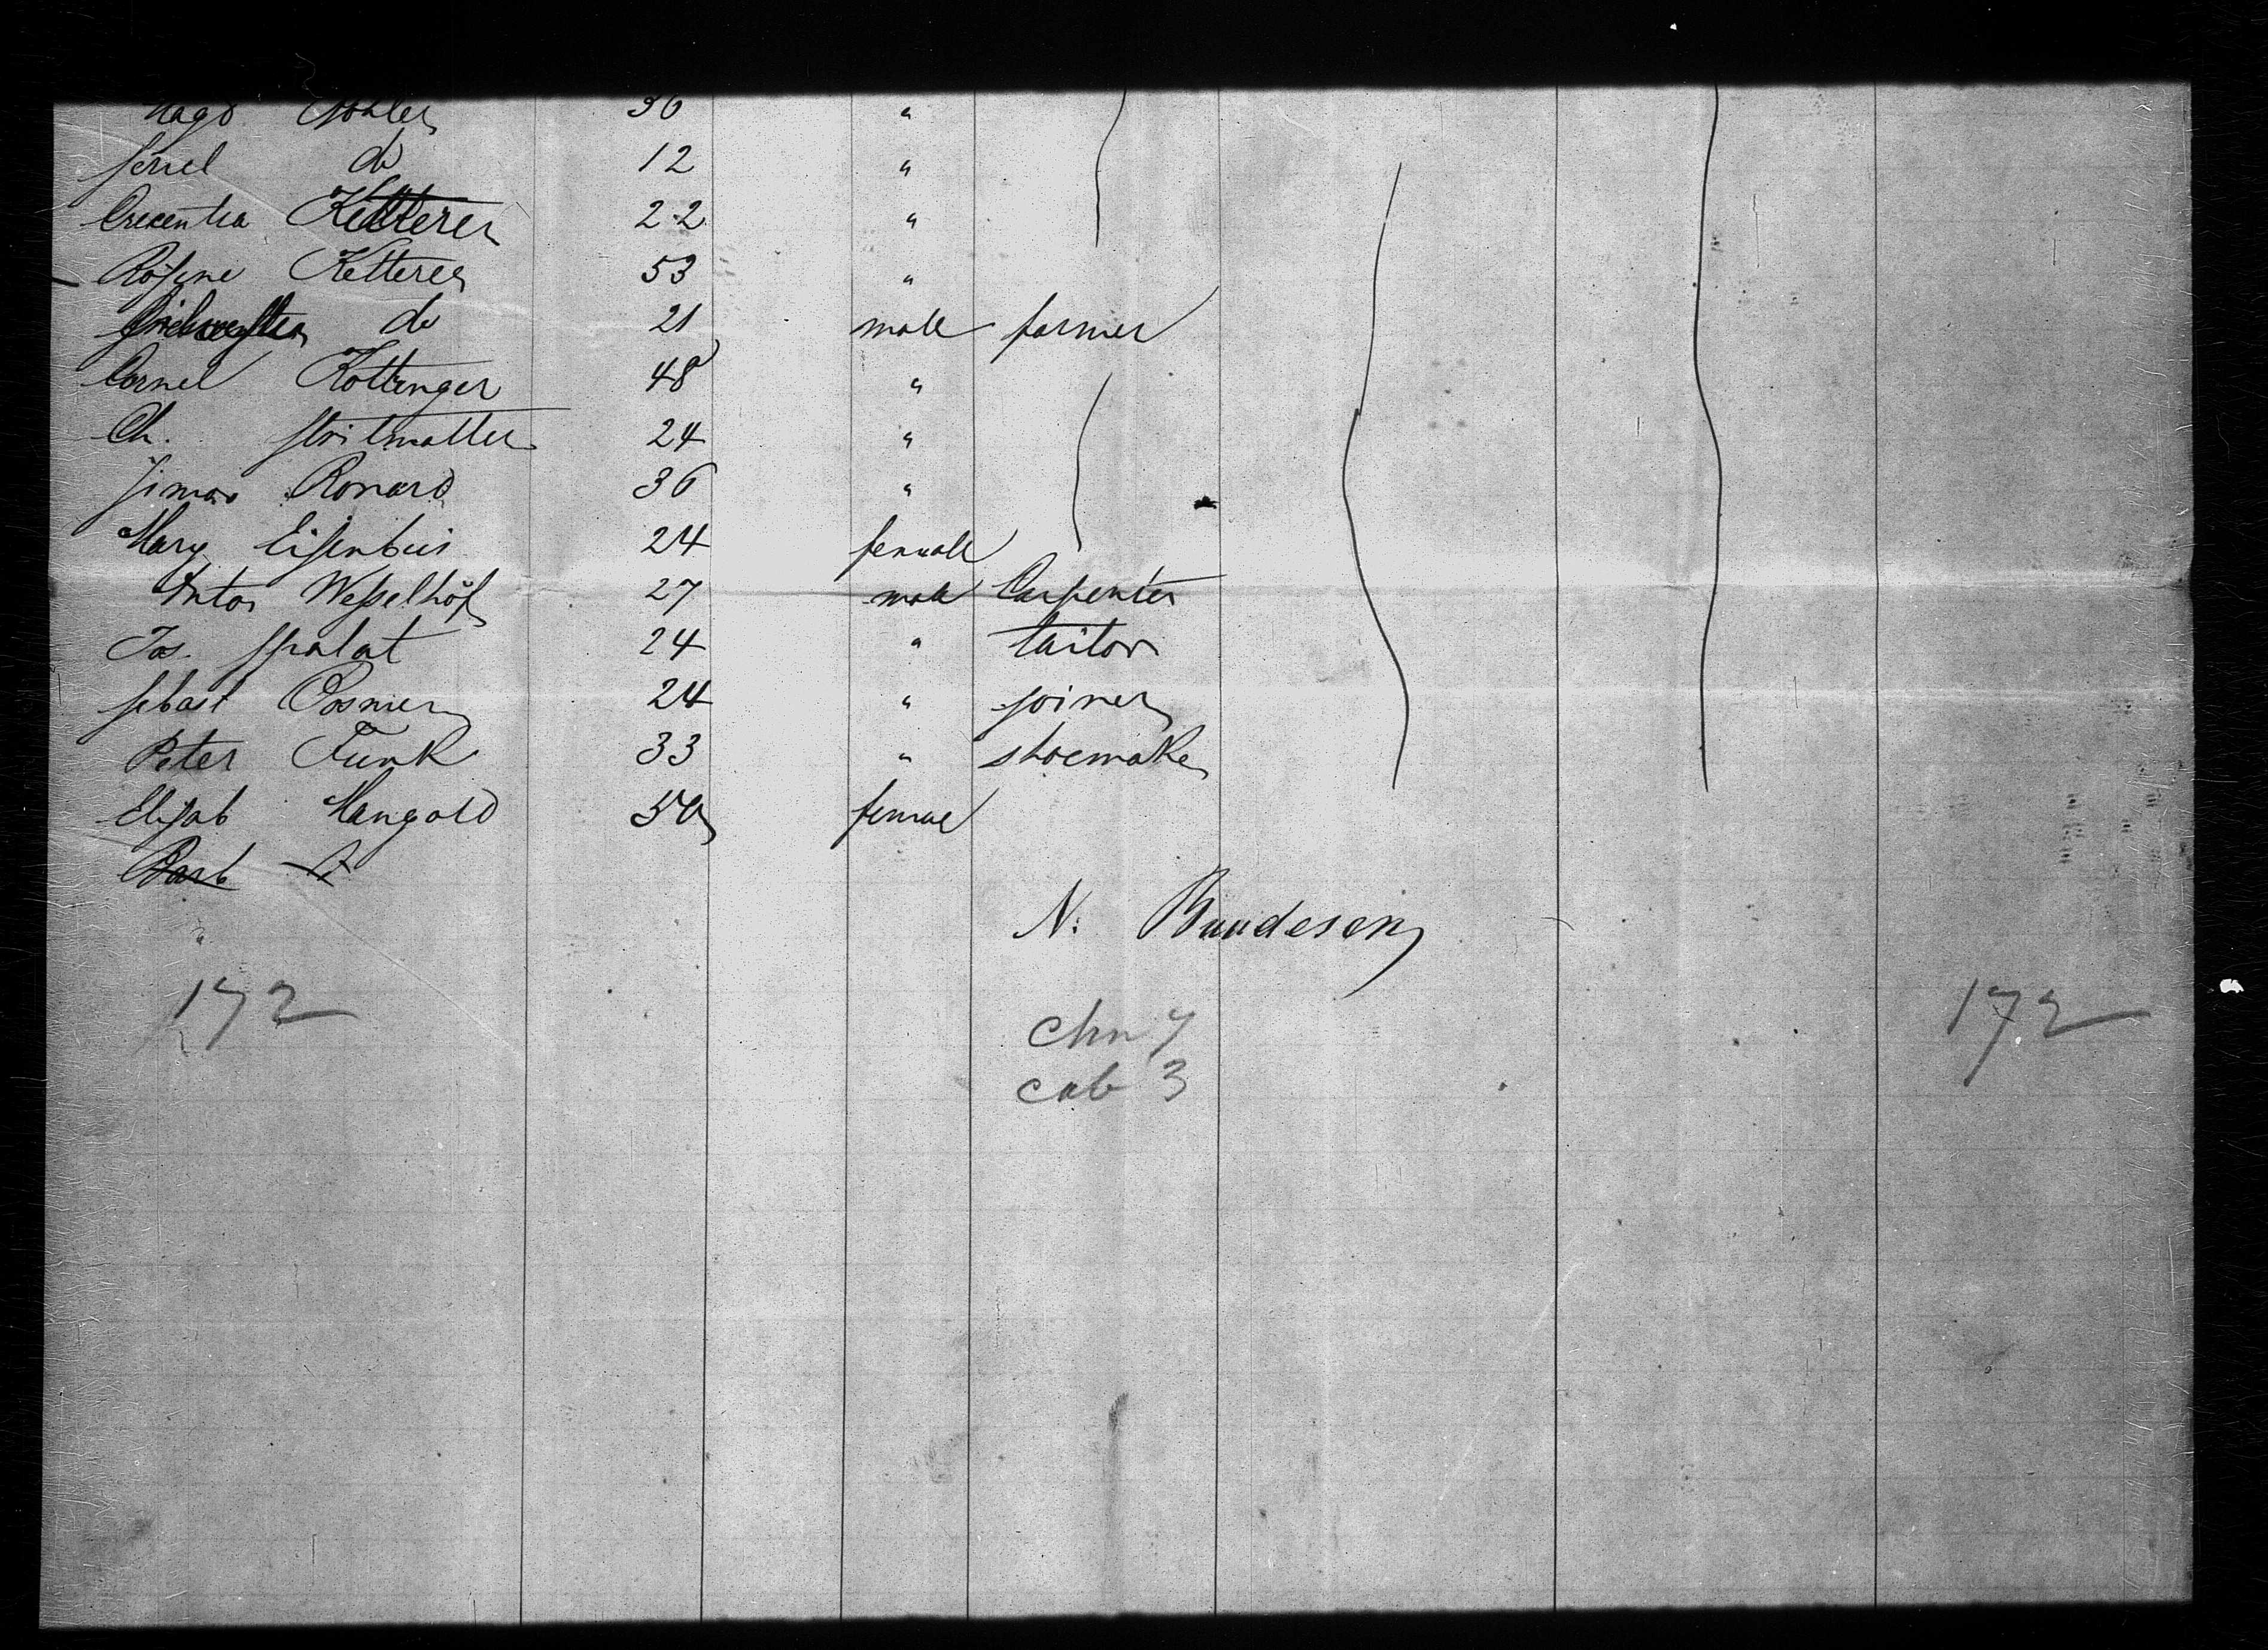 Magd. Kohler 36 "
do 12 "
Crecentia Ketterer 22 "
Rosine Ketterer 53 "
do 21 male farmer
Cornel Kottinger 48 "
Ch. Stritmatter 24 "
Simon Ronard 36 "
Mary Eisenbeis 24 female
Anton Wesselhöft 27 male Carpenter
Jos. Spalat 24 " tailor
Sebast Posmer 24 " joiner
Peter Funk 33 " shoemaker
Elisab Mangold 50 female
Barb
N. Bandesen
172 172
Chn 7
cab 3